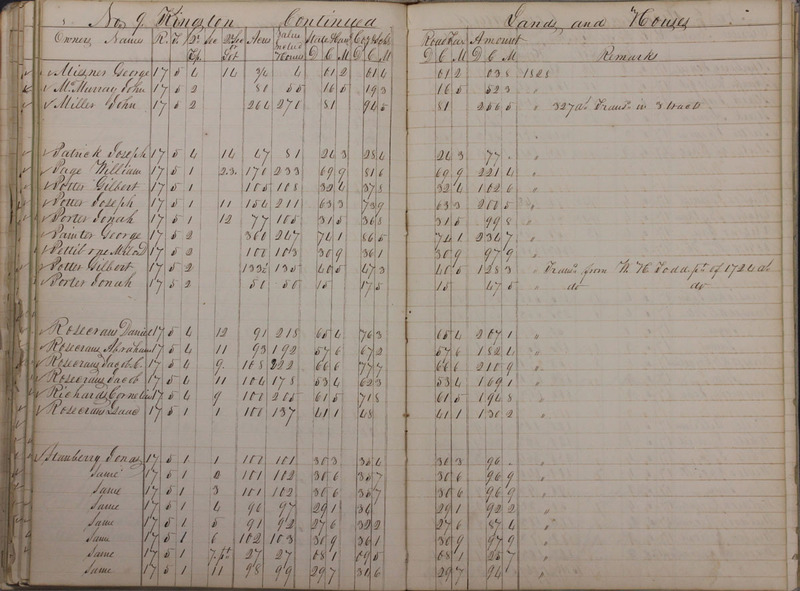 No 9 Kingston Continued Lands and Houses
Owners Names R. T. Acres Value Houses State Road Tax Amount Remarks
D C M D C M D C M D C M
Misner George 17 5 4 14 34 4 01 2 01 6 01 2 03 8 1828
McMurray John 17 5 2 80 55 16 5 19 3 16 5 52 3 "
Miller John 17 5 2 264 270 81 94 5 81 256 5 " 327 as Trans. in 3 tracts
Patrick Joseph 17 5 4 14 47 81 24 3 28 4 24 3 77 - "
Page William 17 5 1 2.3. 170 233 69 9 81 6 69 9 221 4 "
Potter Gilbert 17 5 1 105 108 32 4 37 8 32 4 102 6 "
Potter Joseph 17 5 1 11 154 211 63 3 73 9 63 3 200 5 "
Porter Jonah 17 5 1 12 77 105 31 5 36 8 31 5 99 8 "
Painter George 17 5 2 360 247 74 1 86 5 74 1 234 7 "
17 5 2 100 103 30 9 36 1 30 9 97 9 "
Potter Gilbert 17 5 2 133½ 135 40 5 47 3 40 5 128 3 " Trans. from W. H. Todd pt. of 1724 as
Porter Jonah 17 5 2 50 50 15 17 5 15 47 5 " do do
Rosecrans Daniel 17 5 4 12 91 218 65 4 76 3 65 4 207 1 "
Rosecrans Abraham 17 5 4 11 93 192 57 6 67 2 57 6 182 4 "
Rosecrans Jacob C. 17 5 4 9. 108 222 66 6 77 7 66 6 210 9 "
Rosecrans Jacob 17 5 4 11 104 178 53 4 62 3 53 4 169 1 "
Richards Cornelius 17 5 4 9 100 205 61 5 71 8 61 5 194 8 "
Rosecrans Isaac 17 5 1 1 100 137 41 1 48 41 1 130 2 "
Stanberry Jonas 17 5 1 1 100 101 30 3 35 4 30 3 96 - "
Same 17 5 1 2 101 102 30 6 35 7 30 6 96 9 "
Same 17 5 1 3 101 102 30 6 35 7 30 6 96 9 "
Same 17 5 1 4 96 97 29 1 34 29 1 92 2 "
Same 17 5 1 5 91 92 27 6 32 2 27 6 87 4 "
Same 17 5 1 6 102 103 30 9 36 1 30 9 97 9 "
Same 17 5 1 7 pt 27 27 08 1 09 5 08 1 25 7 "
Same 17 5 1 11 98 99 29 7 34 6 29 7 94 "